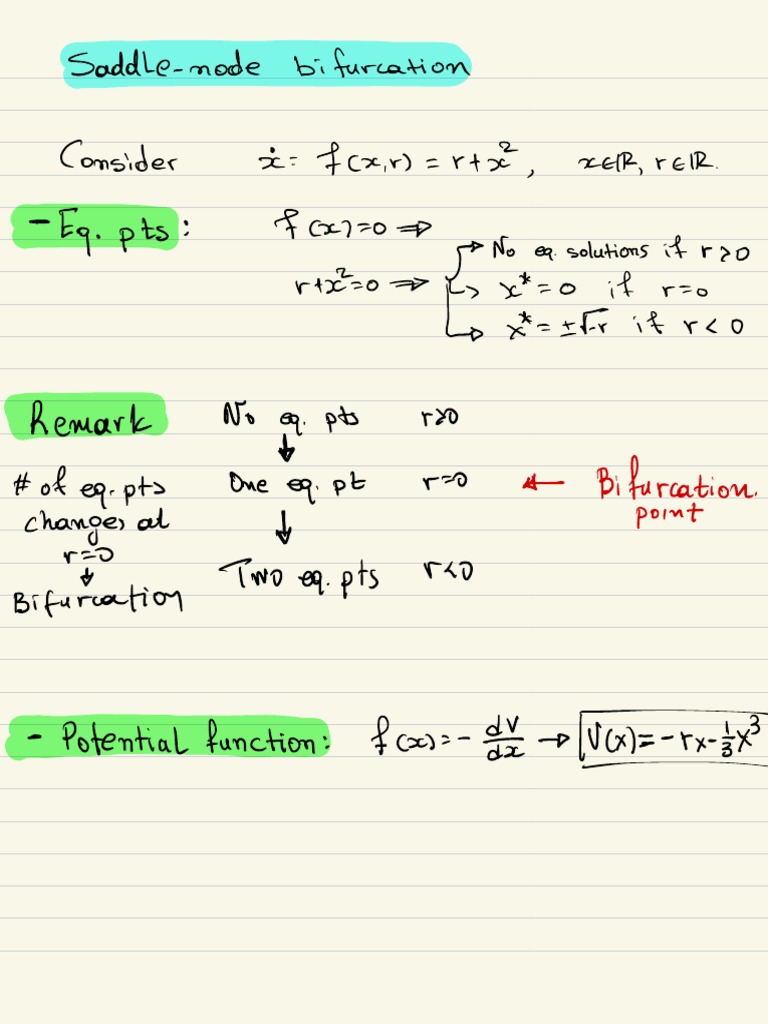 Saddle-node bifurcation
Consider ẋ = f(x,r) = r+x², x∈ℝ, r∈ℝ.
- Eq. pts: f(x)=0 ⇒
r+x²=0 ⇒ → No eq. solutions if r>0
↳ x*=0 if r=0
→ x*=±√-r if r<0
Remark No eq. pts r>0
↓
# of eq. pts One eq. pt r=0 ← Bifurcation.
changes at point
↓
r=0
↓ Two eq. pts r<0
Bifurcation
- Potential function: f(x)=- dV/dx → V(x)=-rx-⅓x³